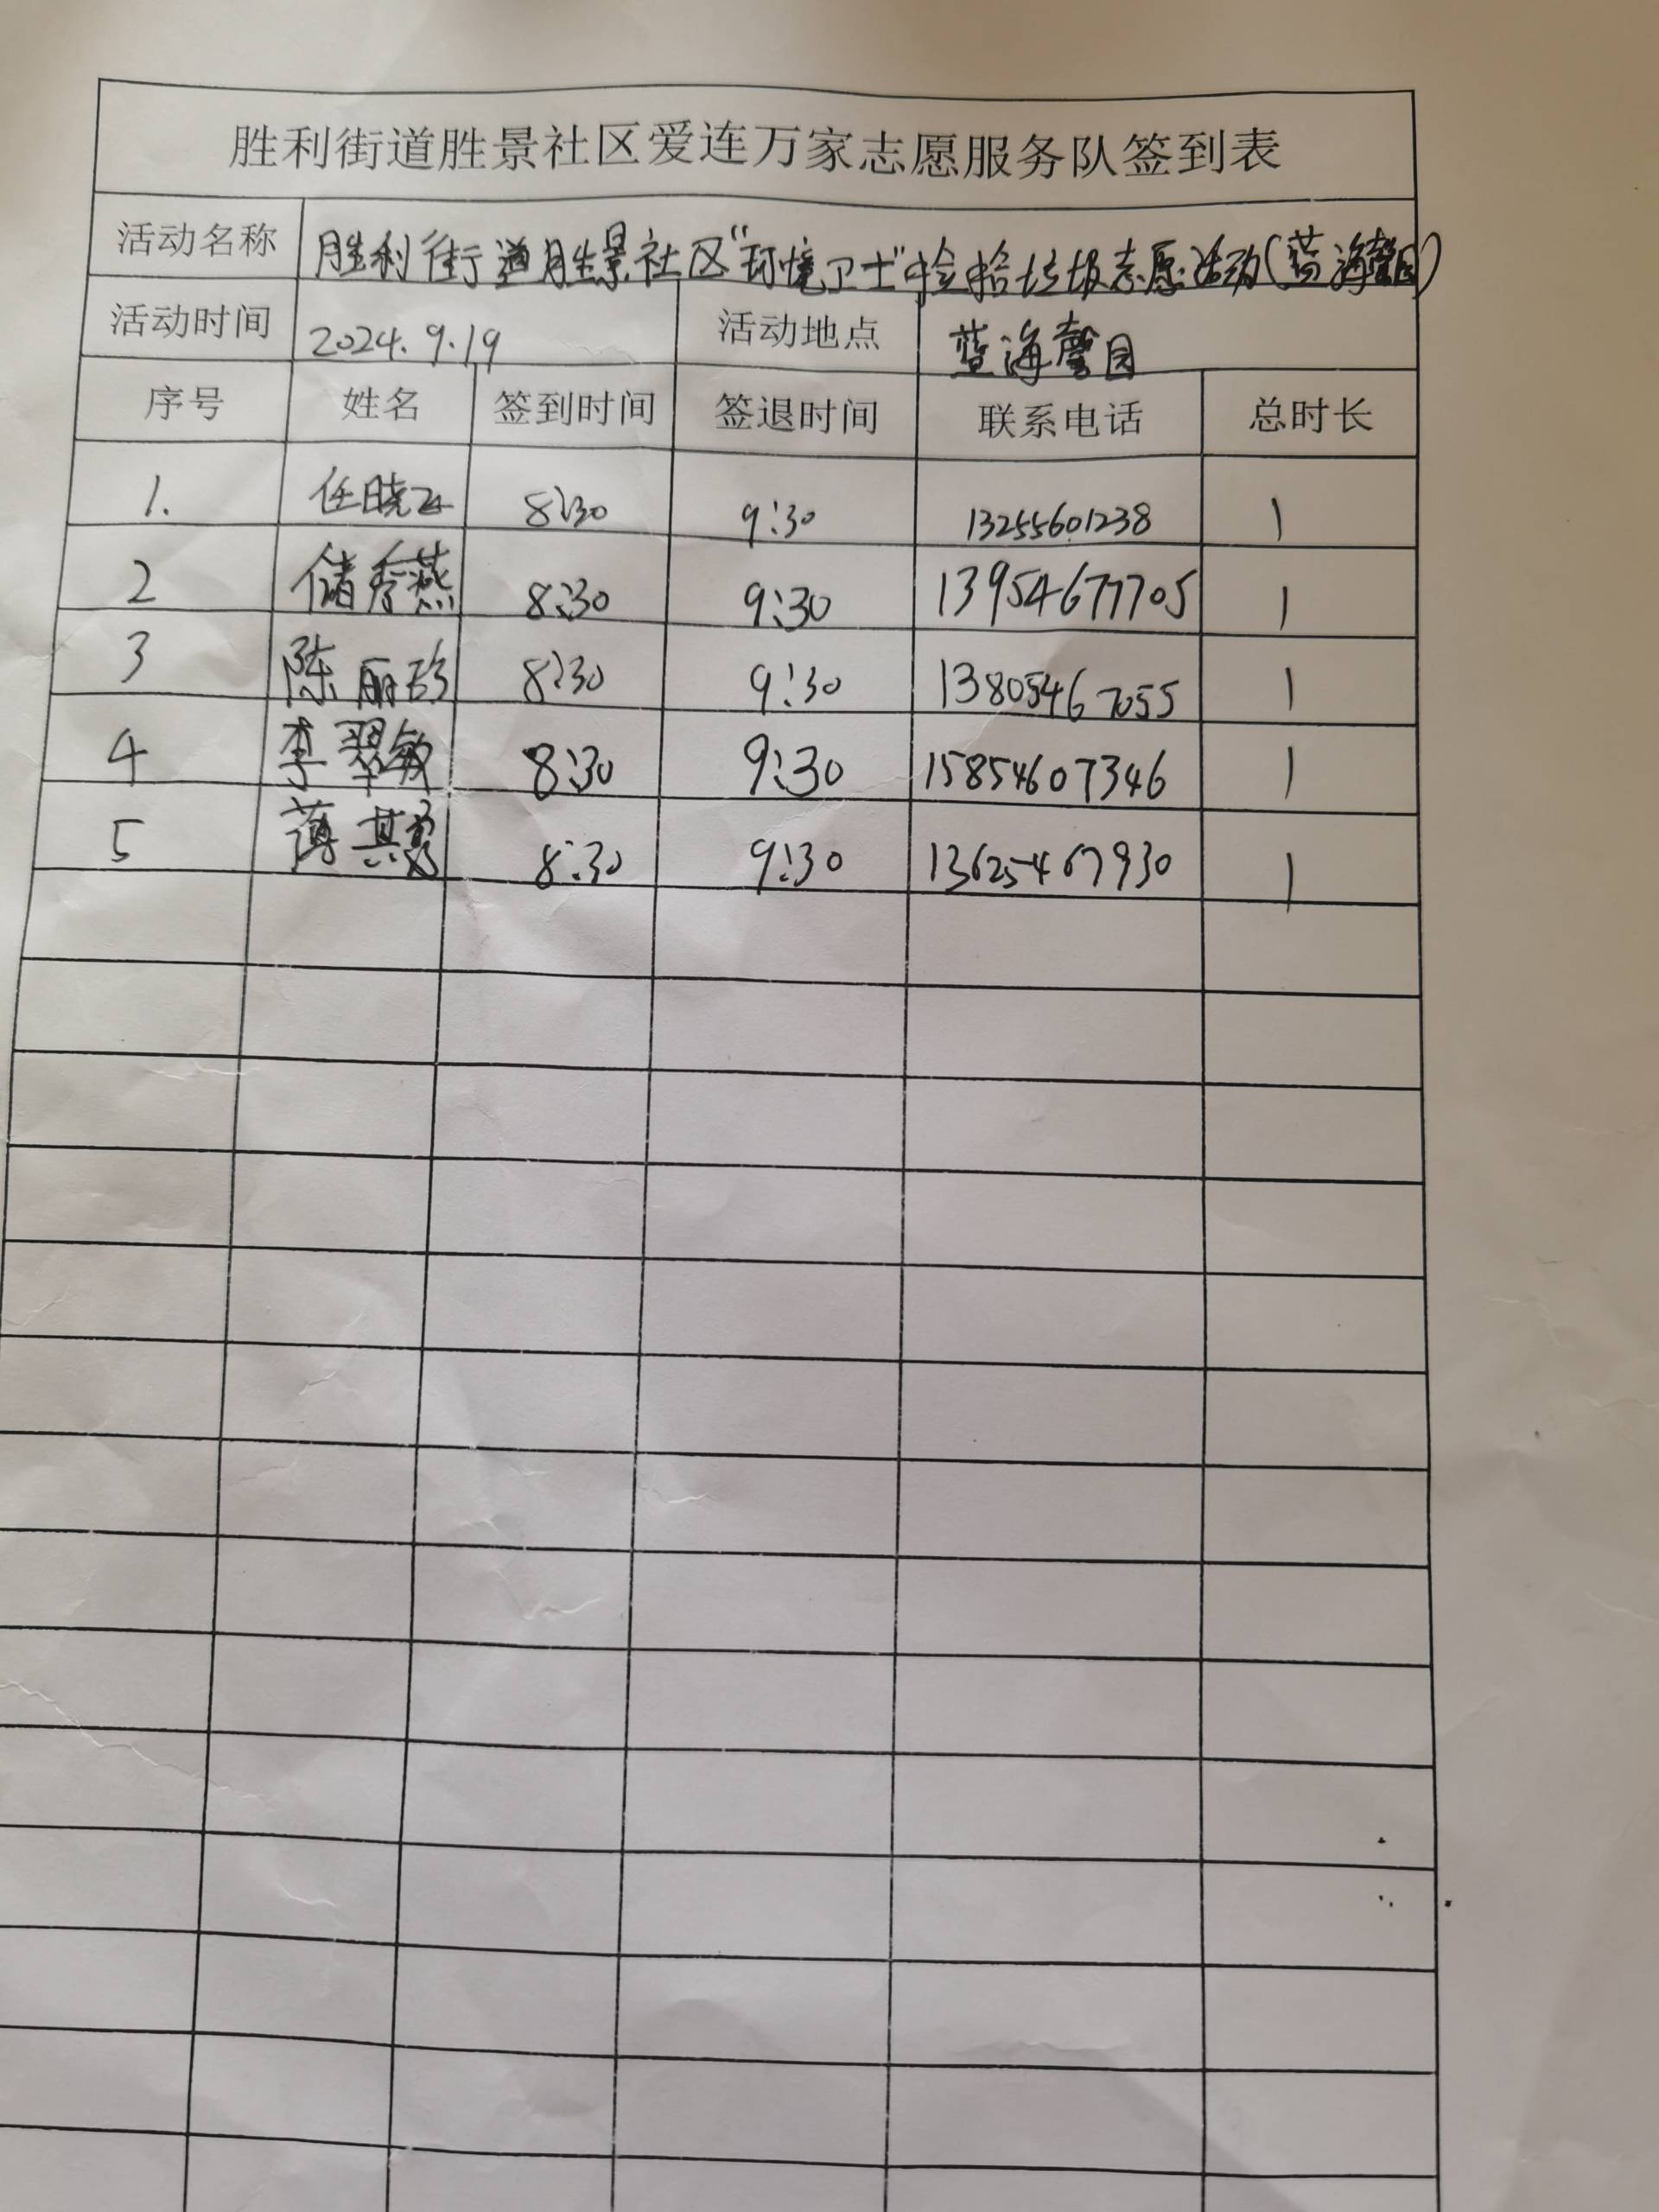 胜利街道胜景社区爱连万家志愿服务队签到表
活动名称 胜利街道胜景社区“环境卫士”捡拾垃圾志愿活动(蓝海馨园)
活动时间 2024.9.19 活动地点 蓝海馨园
序号 姓名 签到时间 签退时间 联系电话 总时长
1. 任晓 8:30 9:30 13255601238 1
2 储秀燕 8:30 9:30 13954677705 1
3 陈丽珍 8:30 9:30 13805467055 1
4 李翠敏 8:30 9:30 15854607346 1
5 薄其 8:30 9:30 13625467930 1